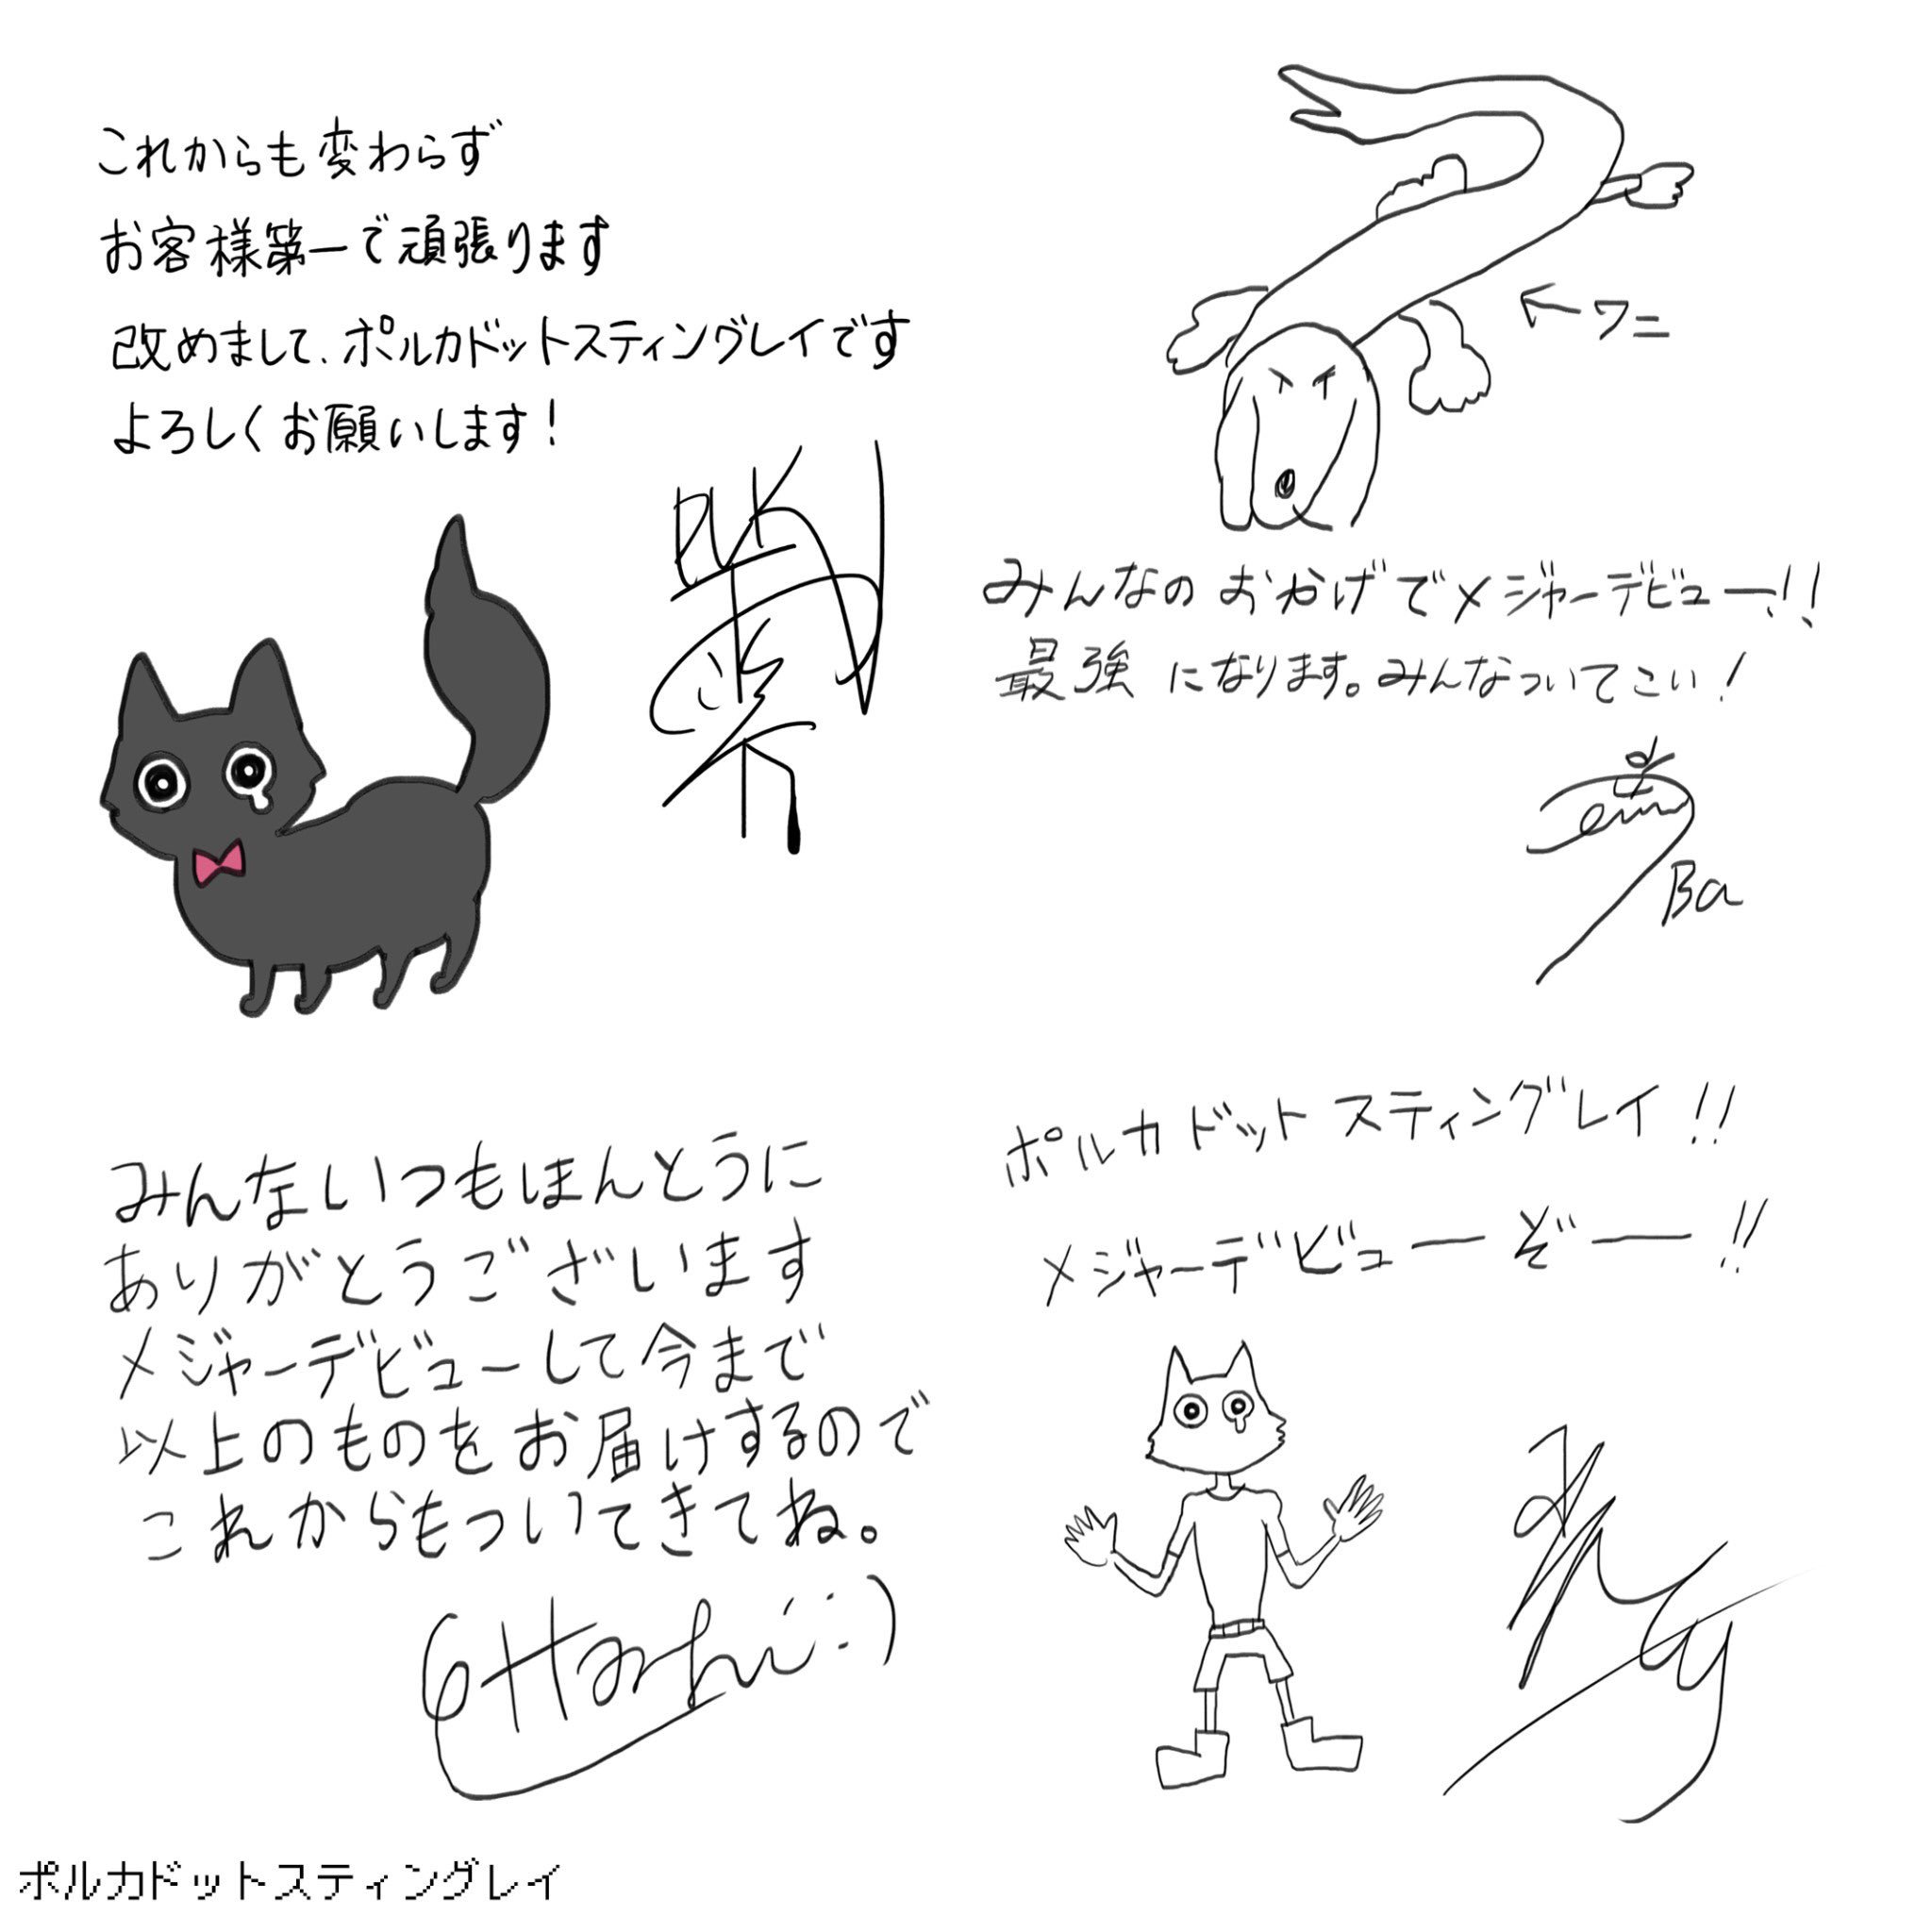 これからも変わらず
お客様第一で頑張ります
改めまして、ポルカドットスティングレイです
よろしくお願いします!
←ワニ
みんなのおかげでメジャーデビュー!!
最強になります。みんなついてこい!
Ba
みんないつもほんとうに
ありがとうございます
メジャーデビューして今まで
以上のものをお届けするので
これからもついてきてね。
ポルカドットスティングレイ!!
メジャーデビューぞー!!
ポルカドットスティングレイ